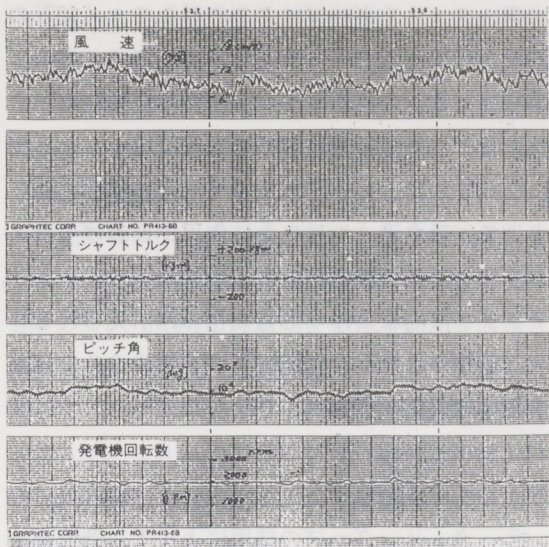 527
528
風 速
18 (m/s)
12
6
GRAPHTEC CORP. CHART NO. PR413-6B
シャフトトルク
+200 kg m
(kg m)
-200
ピッチ角
20°
(deg)
10°
発電機回転数
3000 rpm
2000
(rpm)
1000
GRAPHTEC CORP. CHART NO. PR413-6B